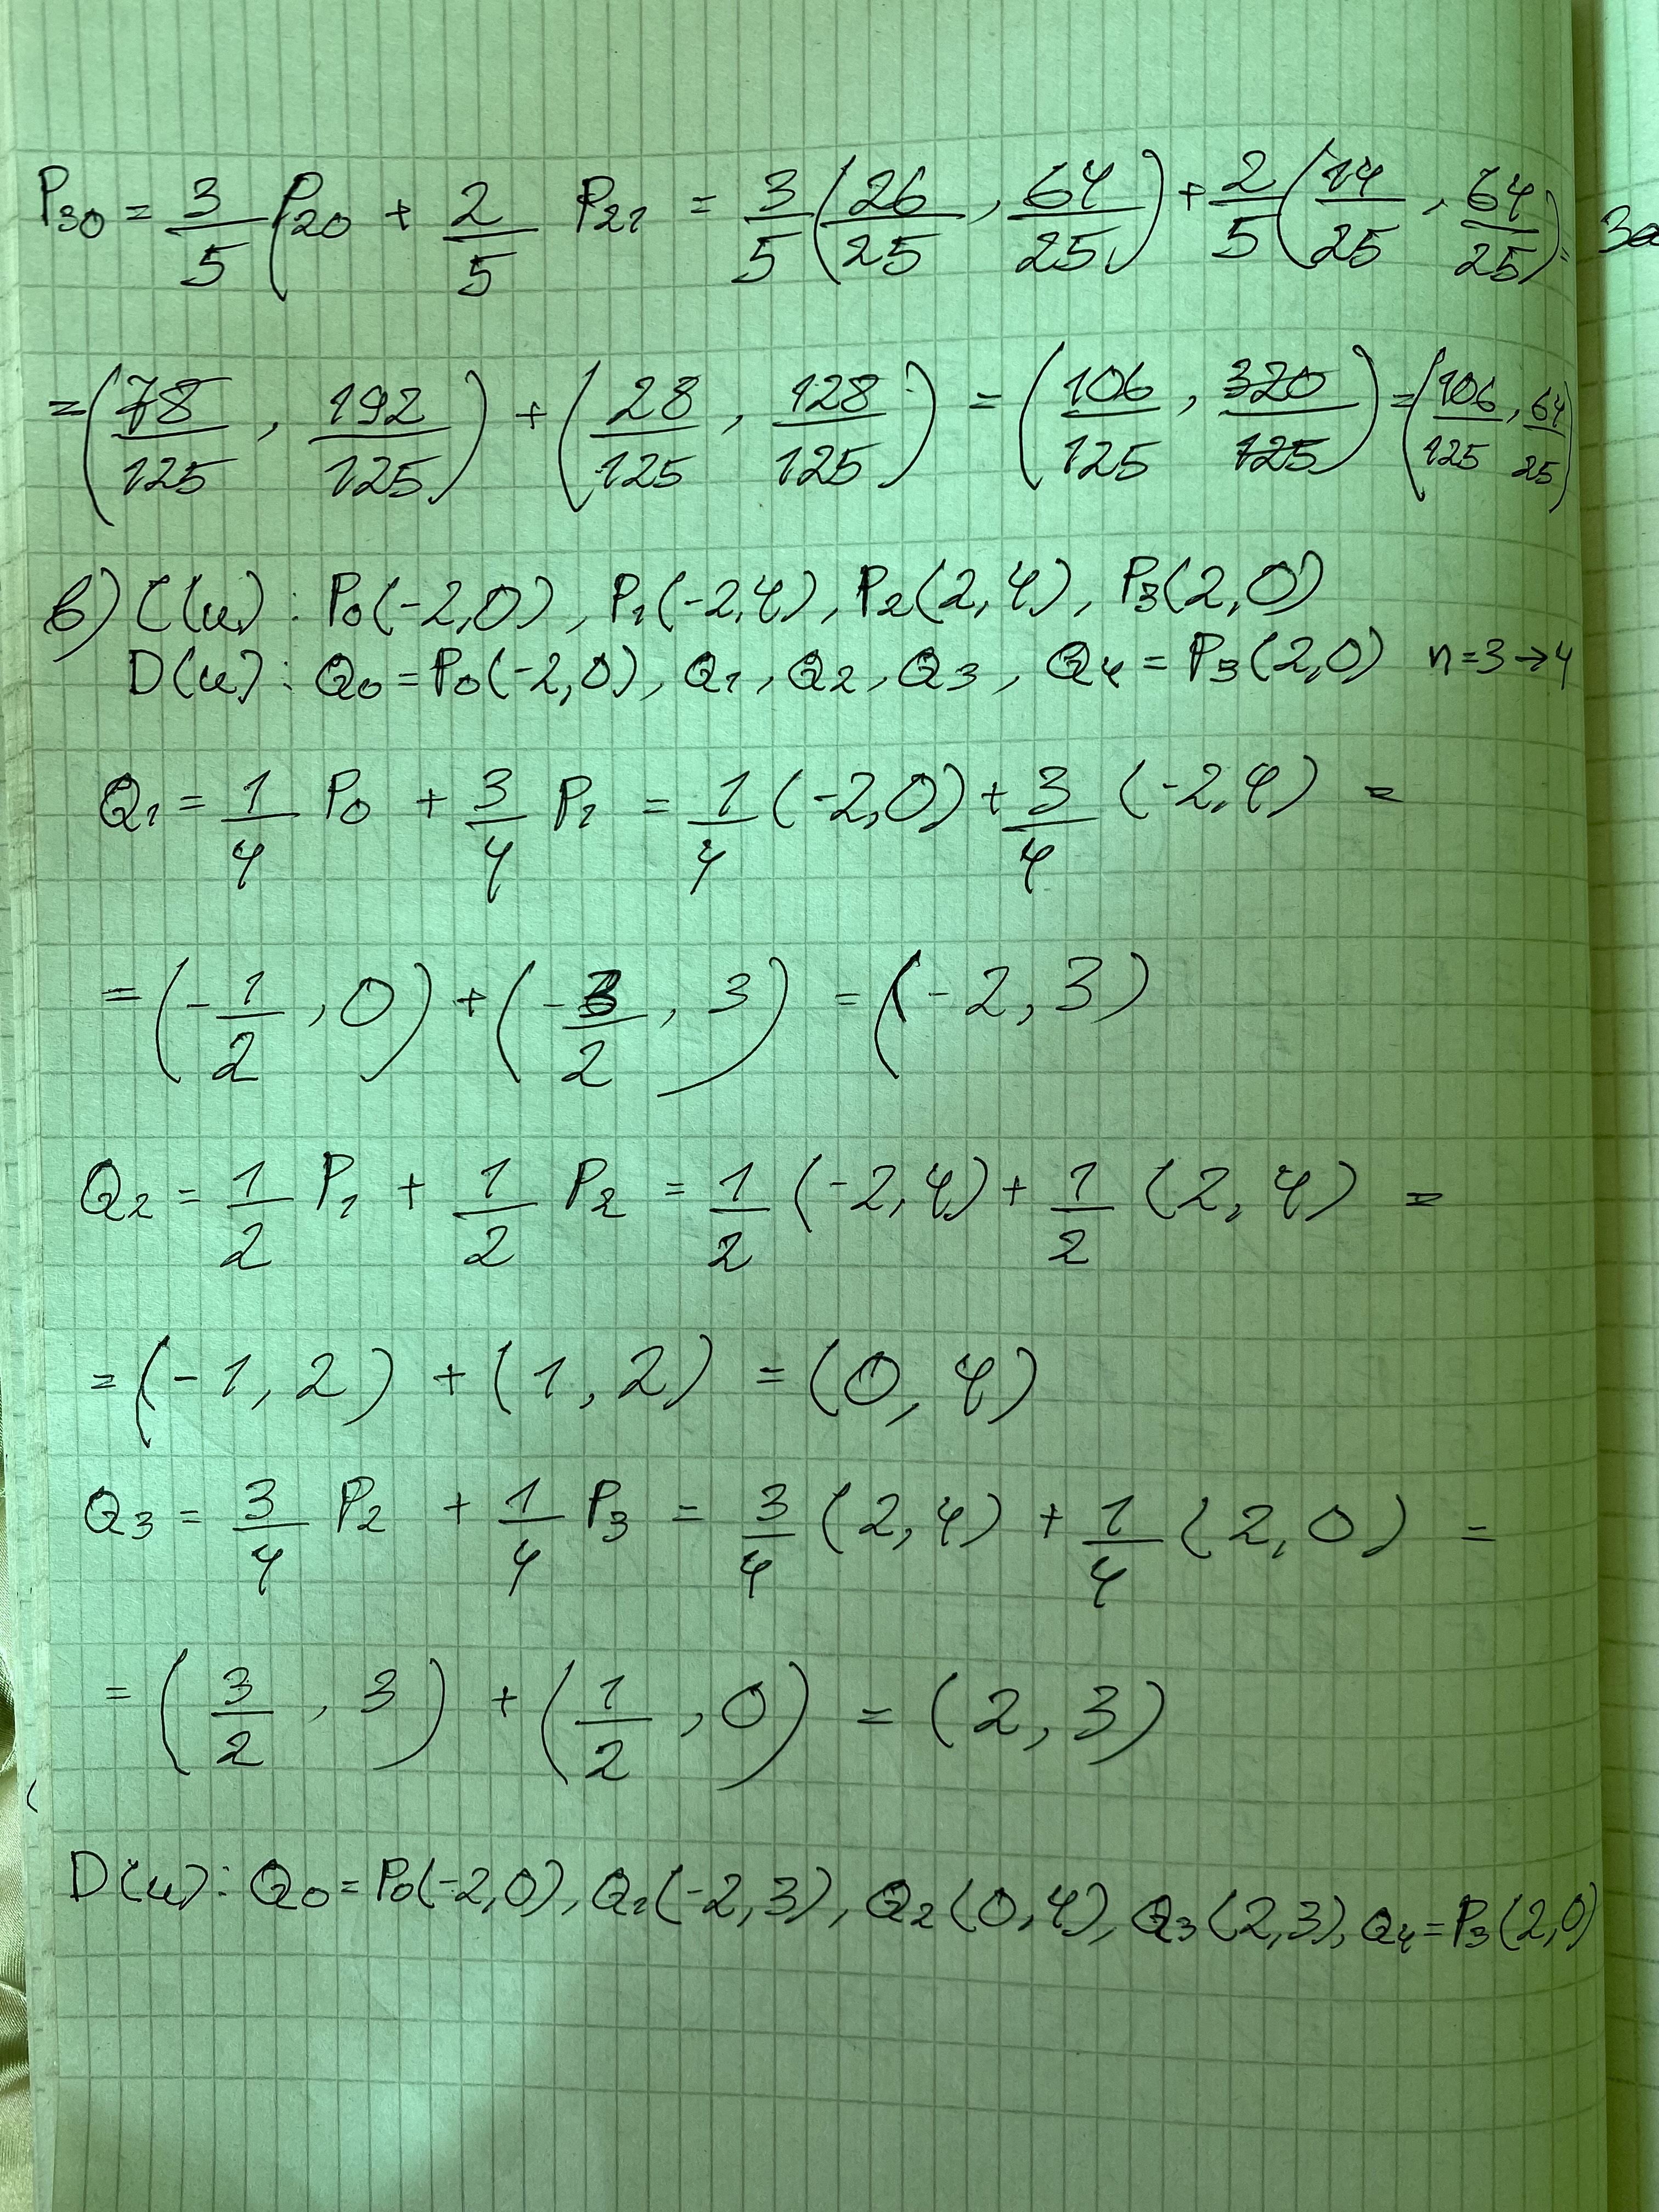 P₃₀ = 3/5 (P₂₀ + 2/5 P₂₁ = 3/5 (26/25, 64/25) + 2/5 (14/25, 64/25) =
= (78/125, 192/125) + (28/125, 128/125) = (106/125, 320/125) = (106/125, 64/25)
в) C(u): P₀(-2,0), P₁(-2,4), P₂(2,4), P₃(2,0)
D(u): Q₀ = P₀(-2,0), Q₁, Q₂, Q₃, Q₄ = P₃(2,0) n=3→4
Q₁ = 1/4 P₀ + 3/4 P₁ = 1/4 (-2,0) + 3/4 (-2,4) =
= (-1/2, 0) + (-3/2, 3) = (-2, 3)
Q₂ = 1/2 P₁ + 1/2 P₂ = 1/2 (-2,4) + 1/2 (2,4) =
= (-1, 2) + (1, 2) = (0, 4)
Q₃ = 3/4 P₂ + 1/4 P₃ = 3/4 (2,4) + 1/4 (2,0) =
= (3/2, 3) + (1/2, 0) = (2, 3)
D(u): Q₀ = P₀(-2,0), Q₁(-2,3), Q₂(0,4), Q₃(2,3), Q₄ = P₃(2,0)